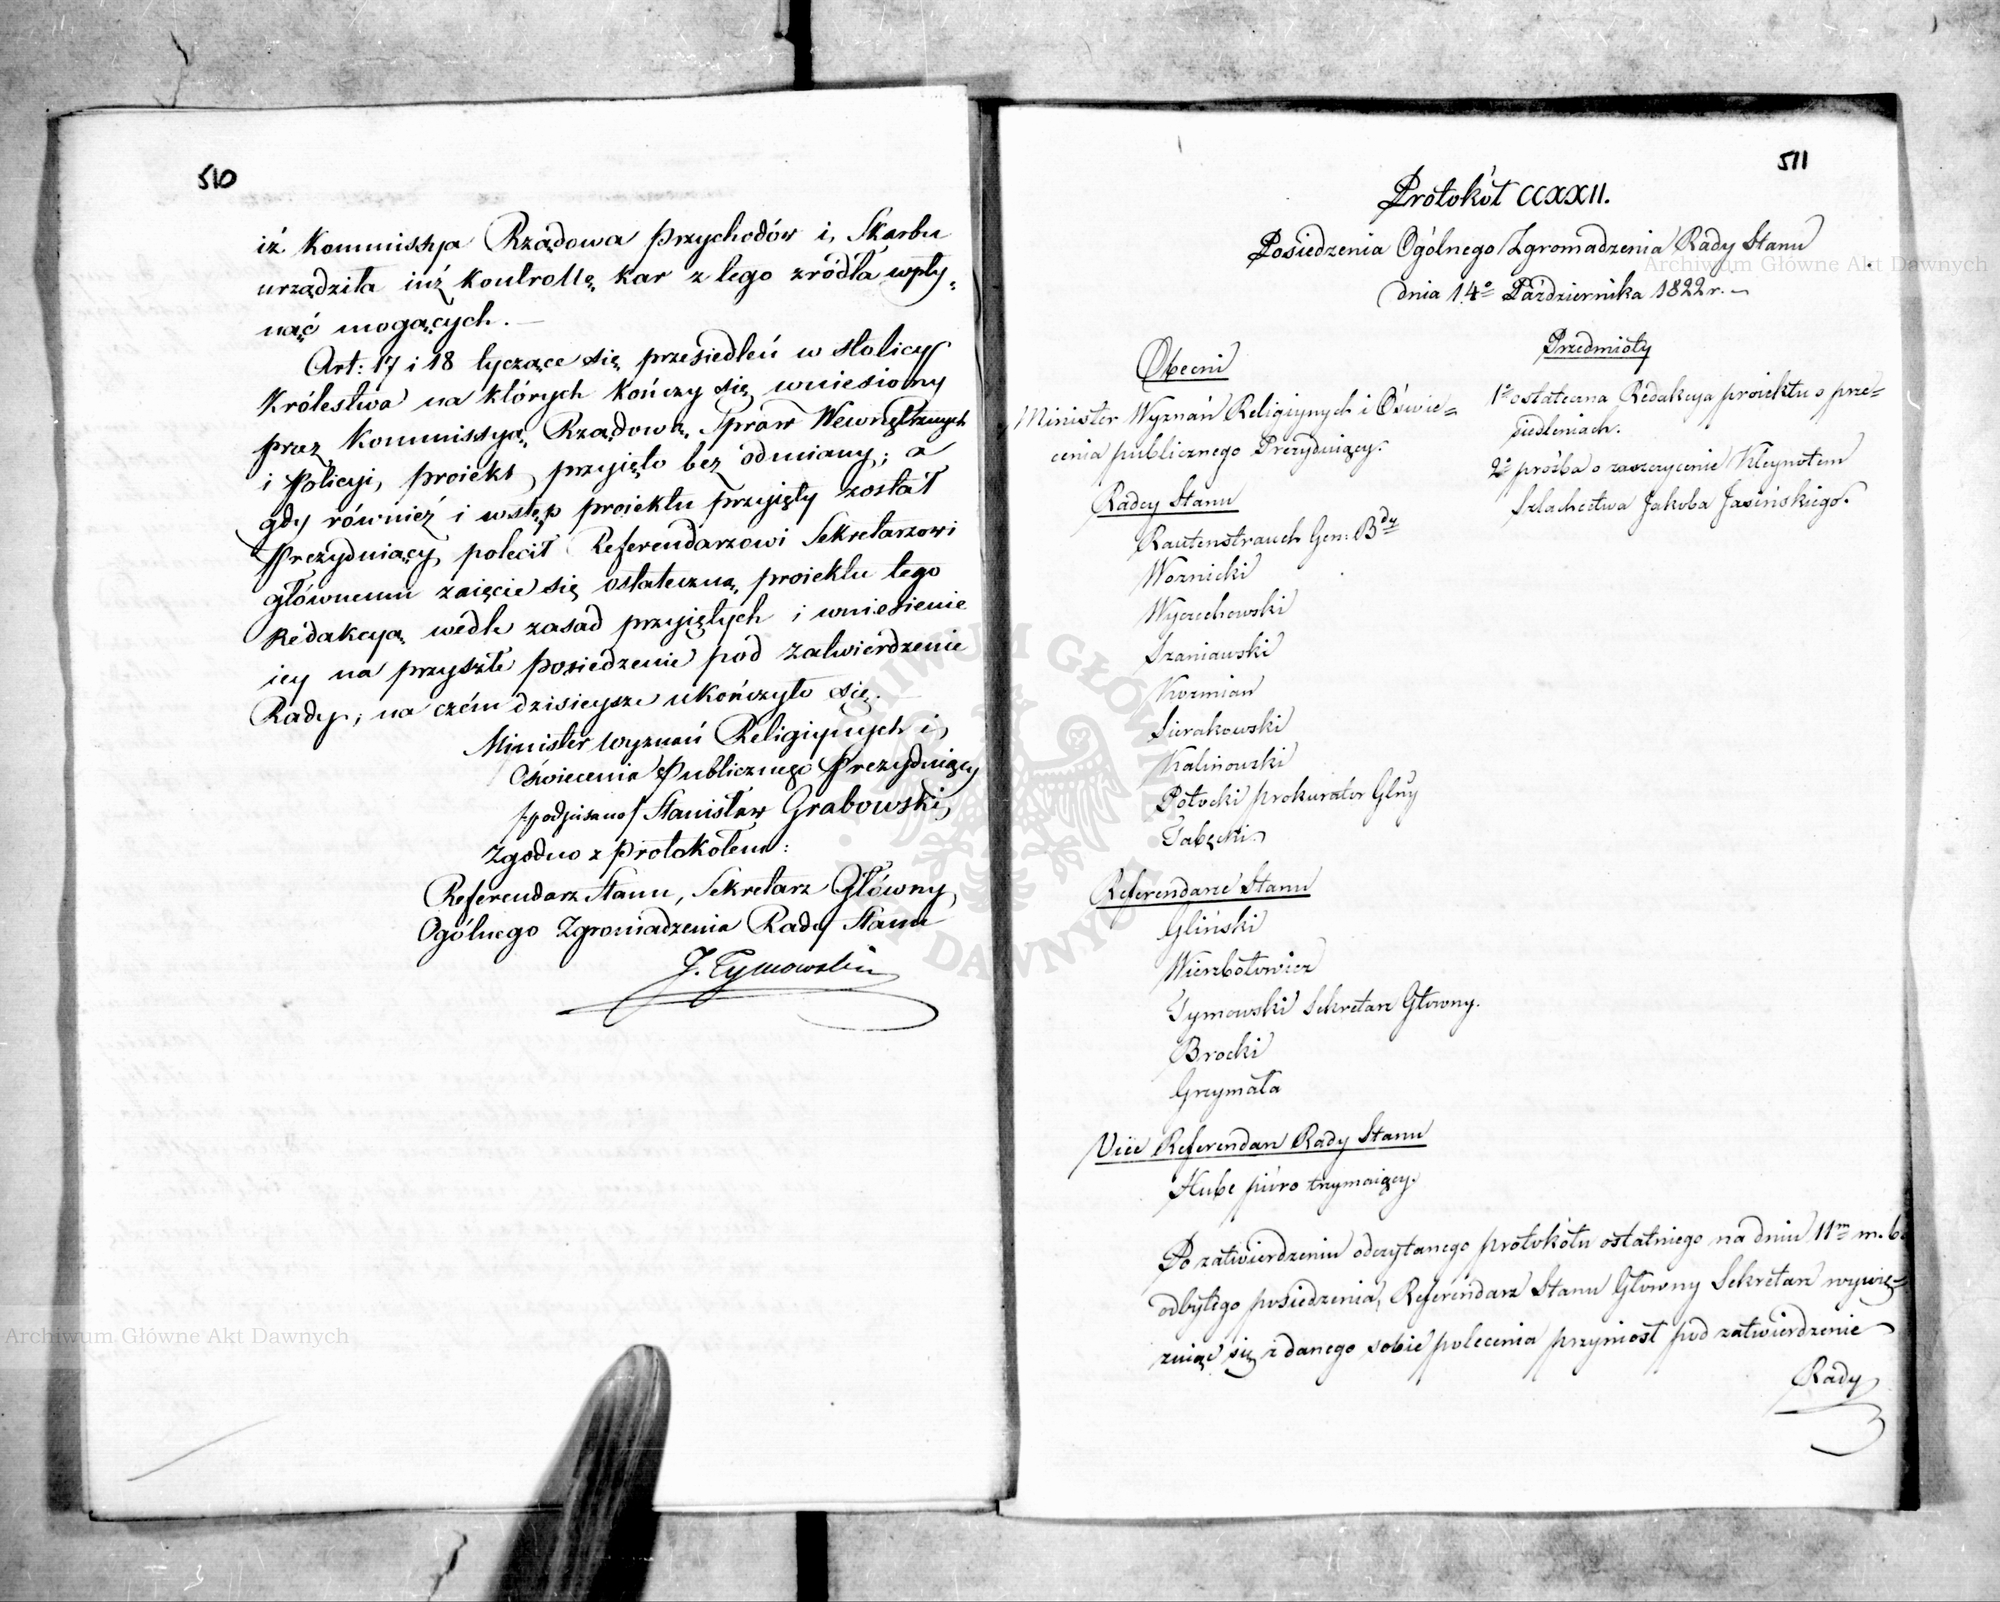 510
iż Kommissya Rządowa Przychodów i Skarbu
urządziła iuż kontrollę kar z tego zródła wpły„
nąć mogących. —
Art: 17 i 18 tyczące się przesiedleń w stolicy
Królestwa na których kończy się wniesiony
przez Kommissyą Rządową Spraw Wewnętrznych
i Policyi, proiekt, przyięto bez odmiany; a
gdy również i wstęp proiektu przyięty został
Prezyduiący polecił Referendarzowi Sekretarzowi
głównemu zaięcie się ostateczną proiektu tego
Redakcyą wedle zasad przyiętych i wniesienie
iey na przyszłe posiedzenie pod zatwierdzenie
Rady, na czém dzisieysze ukończyło się. —
Minister wyznań Religiynych i
Oświecenia Publicznego Prezyduiący
/podpisano/ Stanisław Grabowski
Zgodno z Protokółem:
Referendarz Stanu, Sekretarz Główny
Ogólnego Zgromadzenia Rady Stanu
J. Tymowski
511
Protokół CCXXII.
Posiedzenia Ogólnego Zgromadzenia Rady Stanu
dnia 14º Października 1822 r. —
Obecni
Minister Wyznań Religiynych i Oświe=
cenia publicznego Prezyduiący.
Radcy Stanu
Rautenstrauch Gen: Bdy
Woznicki
Wyczechowski
Szaniawski
Kozmian
Sierakowski
Kalinowski
Potocki prokurator Glny
Tabęcki.
Referendarze Stanu
Gliński
Wierzbołowicz
Tymowski Sekretarz Głowny.
Brocki
Grzymała
Vice Referendarz Rady Stanu
Hube pióro trzymaiący.
Przedmioty
1º ostateczna Redakcya proiektu o prze=
siedleniach.
2º prośba o zaszczycenie Kleynotem
Szlachectwa Jakoba Jasińskiego.
Po zatwierdzeniu odczytanego protokółu ostatniego na dniu 11m m. b.
odbytego posiedzenia, Referendarz Stanu Głowny Sekretarz wywię=
zuiąc się z danego sobie polecenia przyniosł pod zatwierdzenie
Rady
Archiwum Główne Akt Dawnych
Archiwum Główne Akt Dawnych
ARCHIWUM GŁÓWNE AKT DAWNYCH